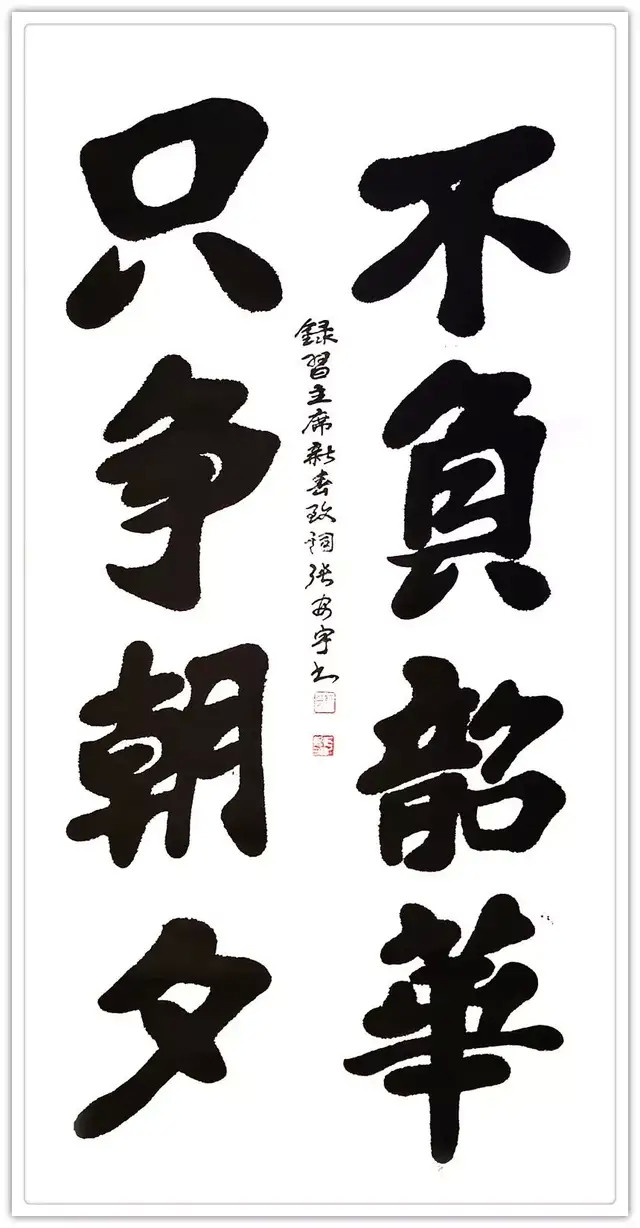 不負韶華
只争朝夕
録習主席新春致詞張安宇书